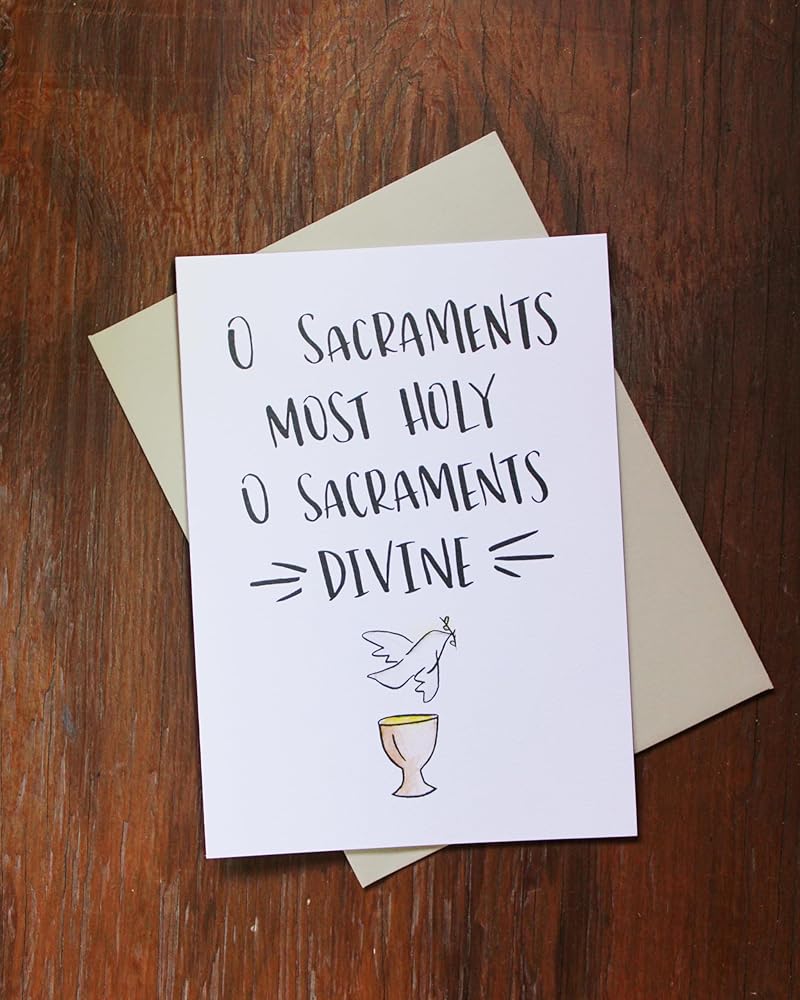 O SACRAMENTS
MOST HOLY
O SACRAMENTS
DIVINE